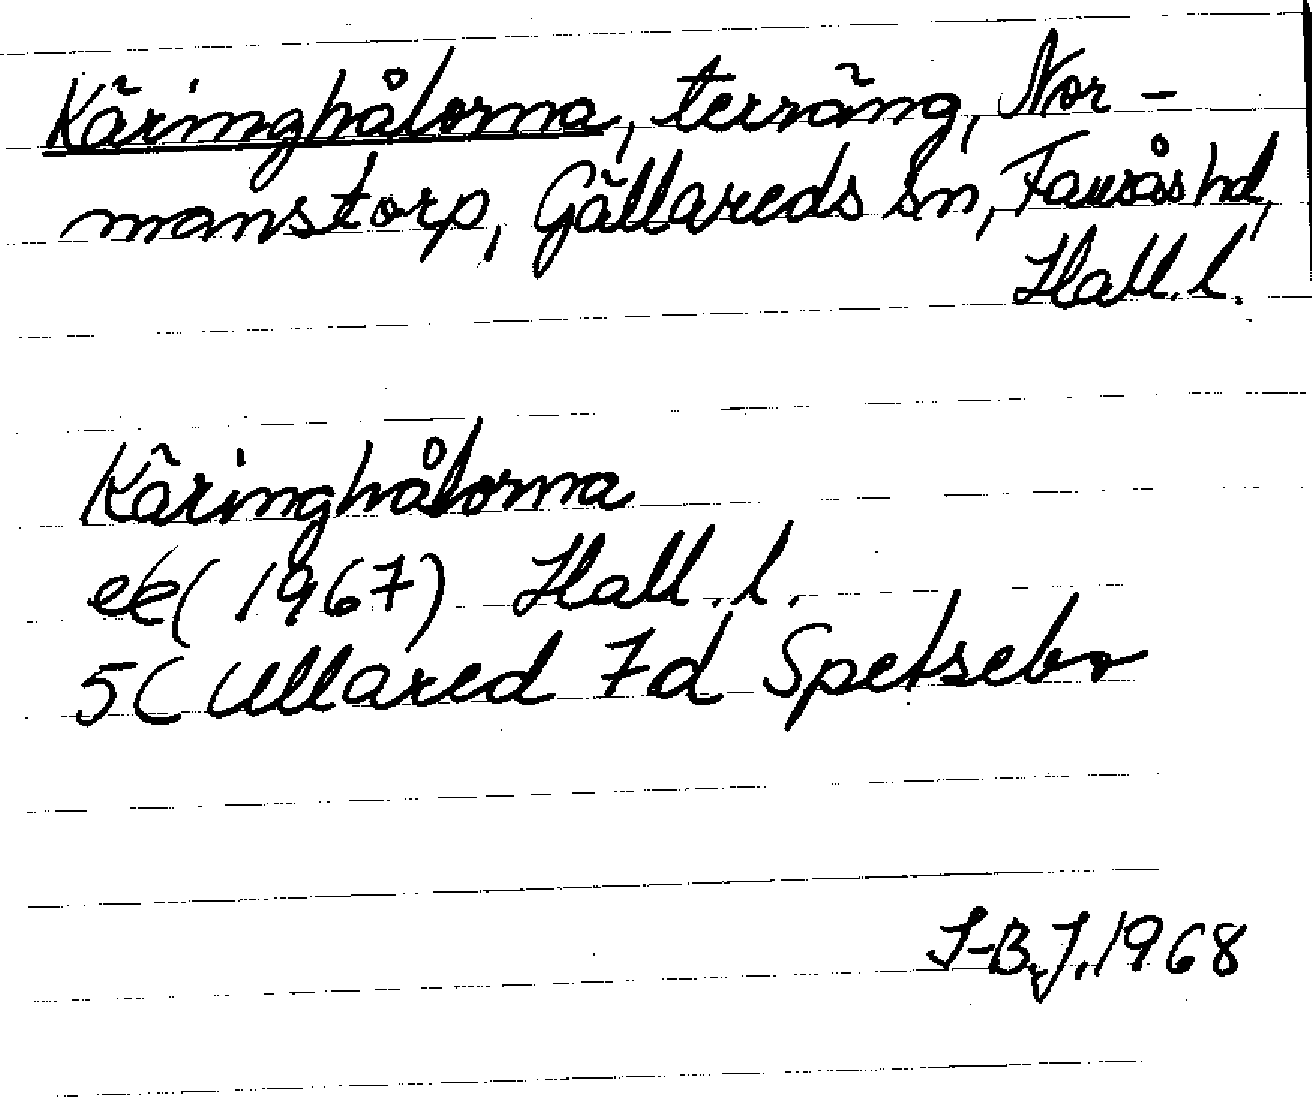 Käringhålorna, terräng, Nor-
manstorp, Gällareds sn, Faurås hd,
Hall. l.
Käringhålorna
ek (1967) Hall. l.
5C Ullared 7d Spetsebo
I-B.J. 1968